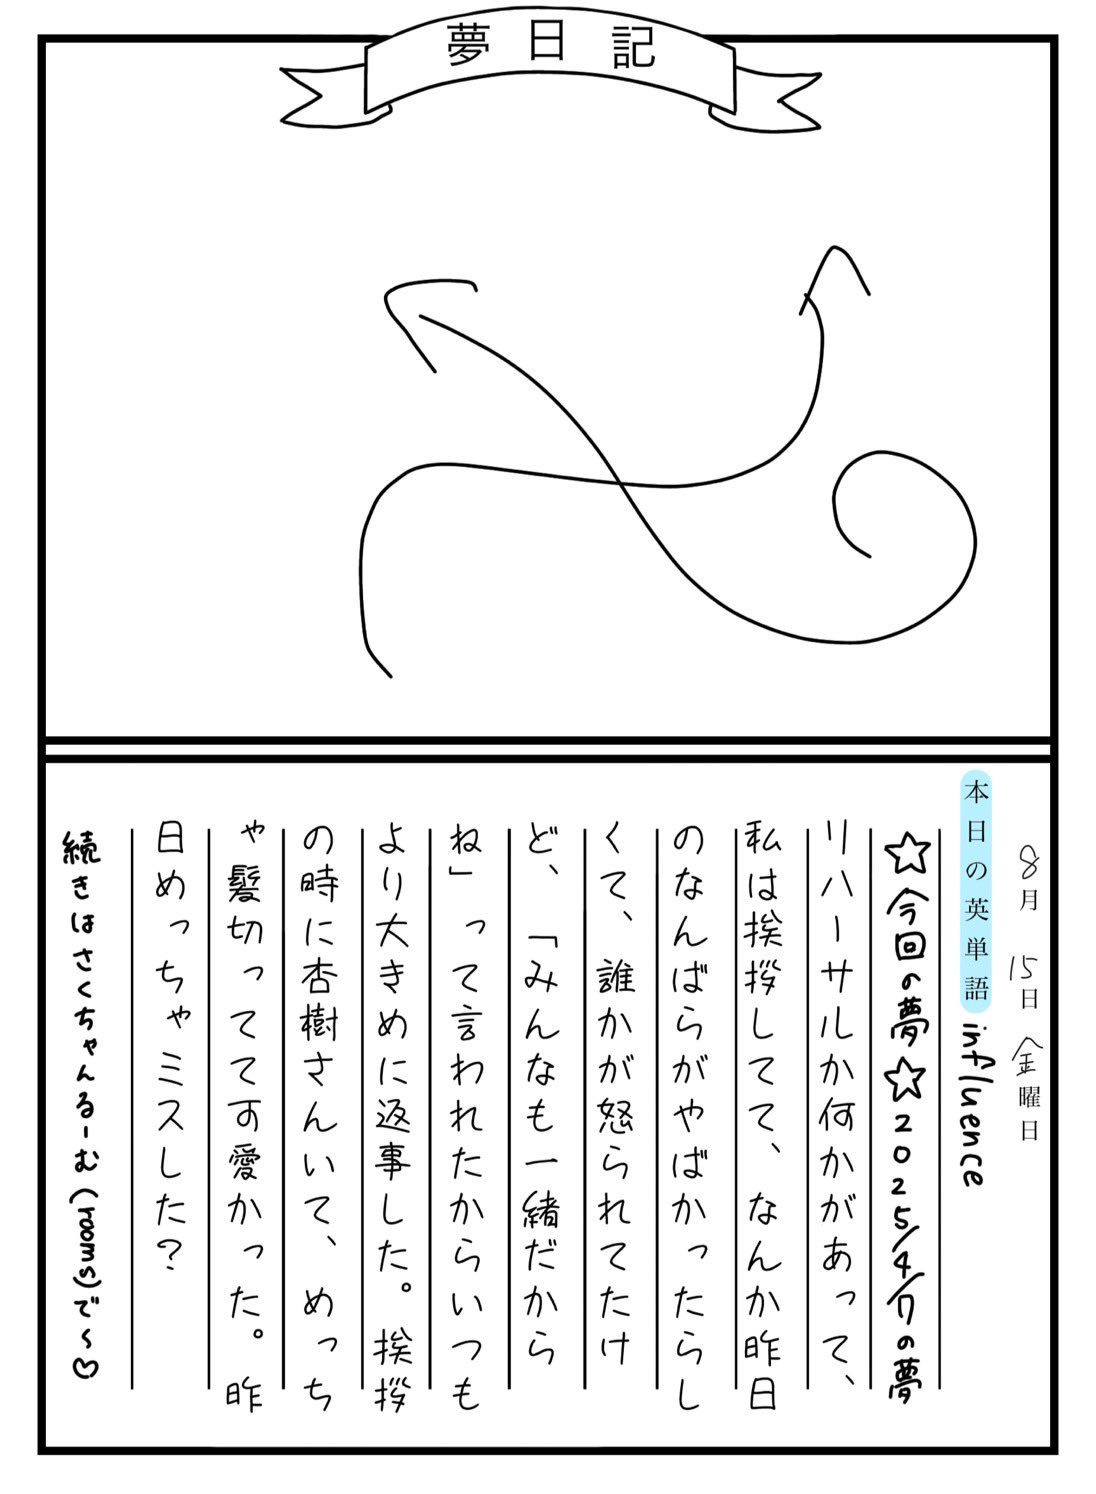 夢日記
8月 15日 金曜日
本日の英単語 influence
☆今回の夢☆2025/4/7の夢
リハーサルか何かがあって、
私は挨拶してて、なんか昨日
のなんばらがやばかったらし
くて、誰かが怒られてたけ
ど、「みんなも一緒だから
ね」って言われたからいつも
より大きめに返事した。挨拶
の時に杏樹さんいて、めっち
ゃ髪切ってて可愛かった。昨
日めっちゃミスした？
続きはさくちゃんるーむ(rooms)で〜♡